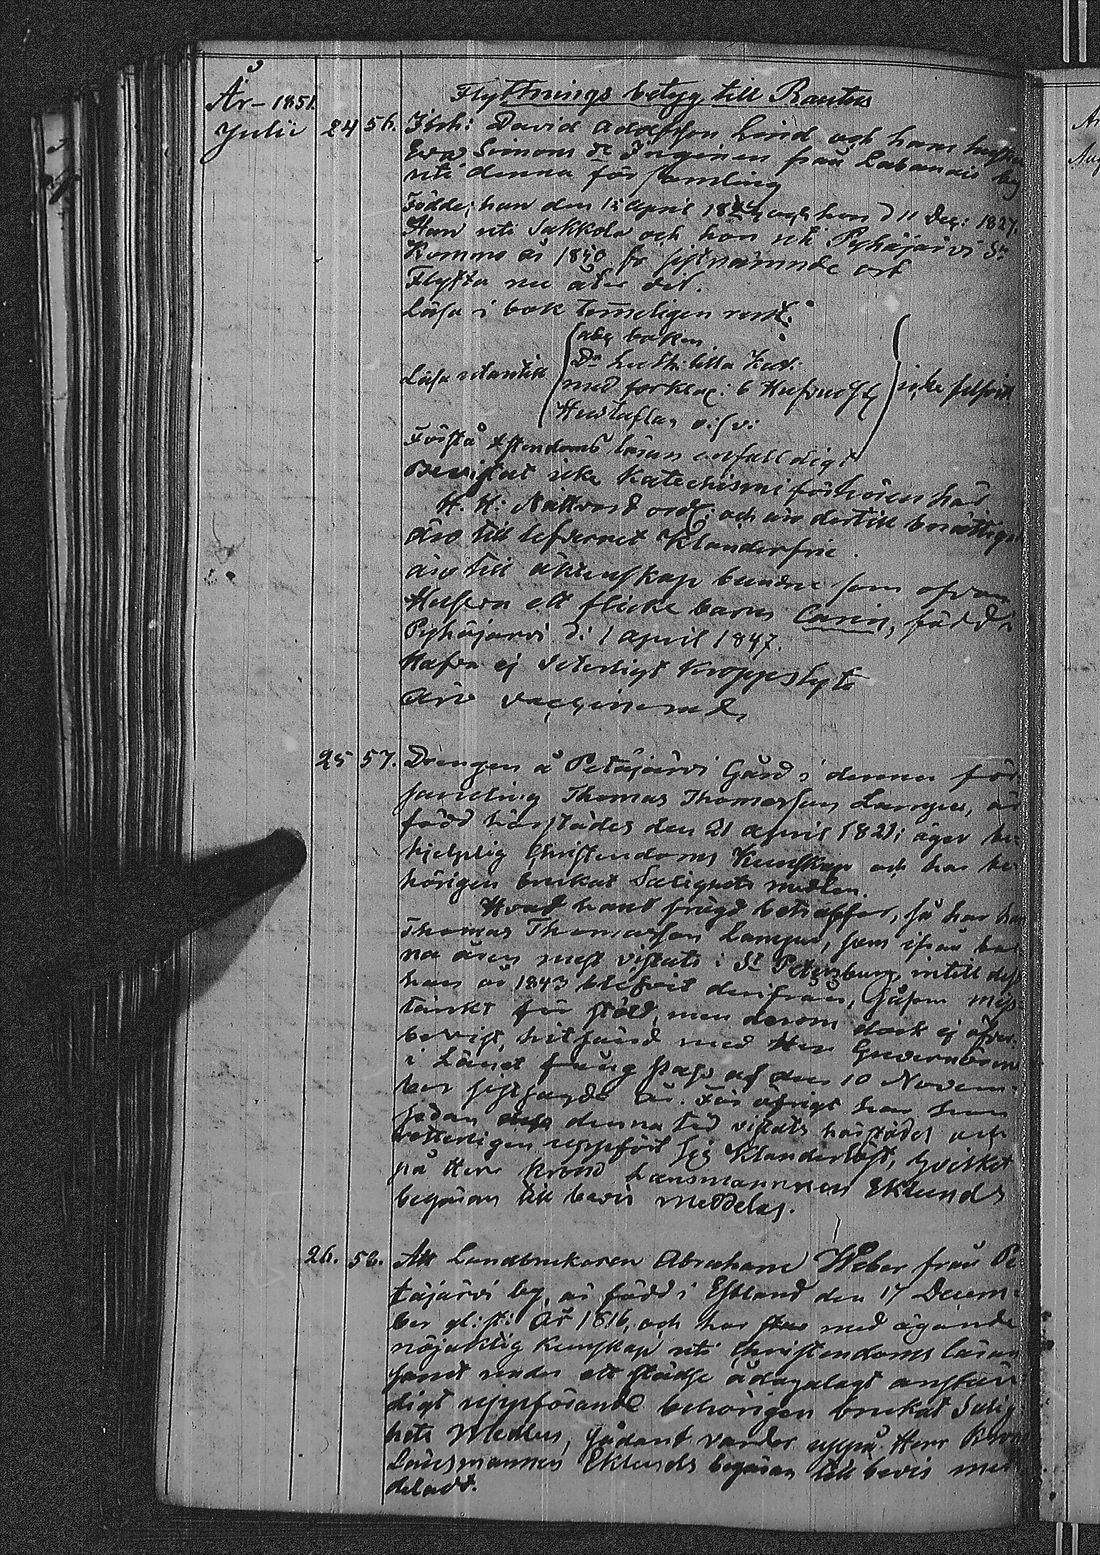 År 1851. Flyttnings betyg till Rautus
Julii 24 56. David Adolfsson Lind och hans hustru
Eva Simons dr Inginen från Labanais by
uti denna församling
Födde; han den 12 April 18 och hon d 11 Dec: 1827.
Han uti Sakkola och hon uti Pyhäjärvi Sn
Kommo år 1850 fr sistnämnde ort
Flytta nu åter dit.
Läsa i bok temmeligen
Läsa utantill abc boken
Dr Luth: lilla Kat:
med förklar: 6 Hufvudst
Hustaflan o:s:v:
Förstå Xstendoms läran
Bevistat icke Katechismi förhören här
H. H: Nattvard och äro dertill berättigade
äro till lefvernet Klanderfrie.
äro till äktenskap bundne som ofvan
Hafva ett flicke barn Carin, född i
Pyhäjärvi d: 1 April 1847.
Hafva ej veterligt kroppslyte
äro vaccinerade
25 57. Drengen å Petäjärvi Gård i denna för
samling Thomas Thomasson är
född härstädes den 21 April 1821; äger be-
hjelplig Christendoms Kunskap och har be-
hörigen brukat Salighets medlen.
Hvad hans frägd beträffar, så har han
Thomas Thomasson som ifrån bar
na åren mest vistats i St Petersburg, intill dess
han år 1843 blifvit derifrån, såsom miss
tänkt för stöld, men derom dock ej öfver
bevist, hitsänd med Herr Guvernörens
i Länet fång pass af den 10 Novem-
ber sistsagde år. För öfrigt har han
sedan denna tid vistats härstädes och
veterligen uppfört sig Klanderlöst, hvilket
på Herr Krono Länsmannen Eklunds
begäran till bevis meddelas.
26. 58. Att Landbrukaren Abraham Weber från Pe
täjärvi by, är född i Estland den 17 Decem-
ber gl: st: År 1816, och har med ägande
nöjaktig Kunskap uti Christendoms läran
samt under ett städse ådagalagt anstän
digt uppförande behörigen brukat Salig
hets Medlen, sådant varder uppå Herr Krono
Länsmannen Eklunds begäran till bevis med
deladt.